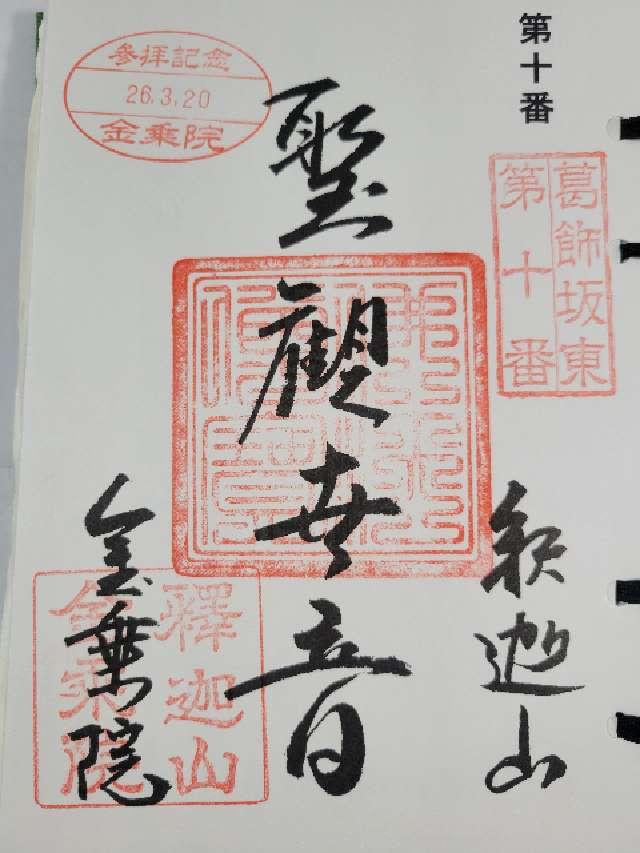 第十番
葛飾坂東
第十番
釈迦山
聖観世音
参拝記念
26.3.20
金乗院
金乗院
釋迦山
金乗院